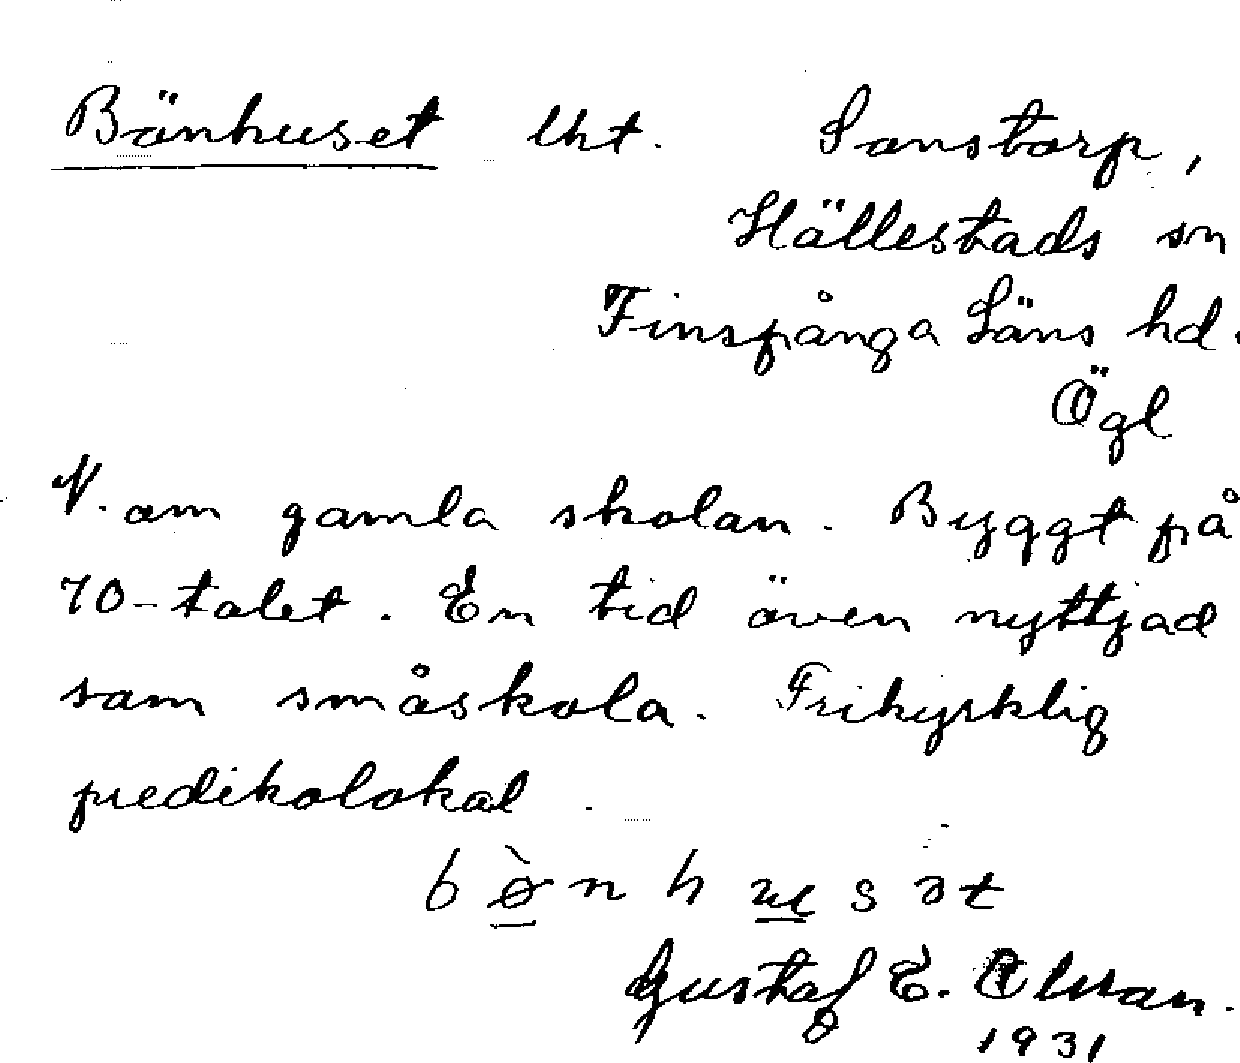 Bönhuset lht. Sonstorp,
Hällestads sn
Finspånga Läns hd.
Ögl
N. om gamla skolan. Byggt på
70-talet. En tid även nyttjad
som småskola. Frikyrklig
predikolokal.
bø̀nhusət
Gustaf E. Olsson.
1931